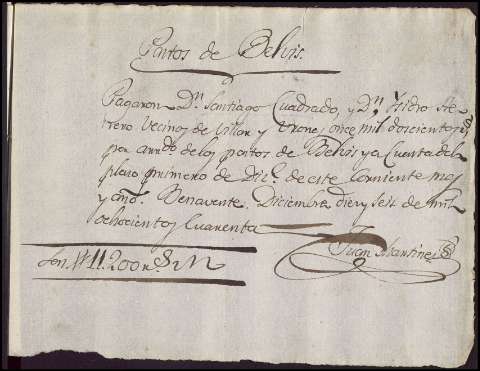 Pastos de Belvis.
Pagaron Dn. Santiago Cuadrado, y Dn. Ysidro He-
rrero Vecinos de Villar y once mil doscientos rs
por arrdo. de los pastos de Belvis y a Cuenta del
plazo primero de Dic.e de este Corriente mes
y año. Benavente Diciembre diez y seis de mil
ochocientos Cuarenta
Juan Martinez
Son 11.200 rs Vn